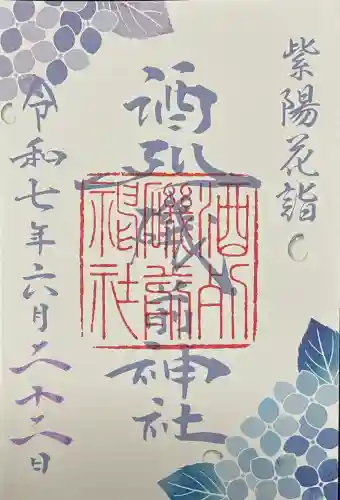 紫陽花詣
酒列磯前神社
酒列
磯前
神社
令和七年六月二十二日